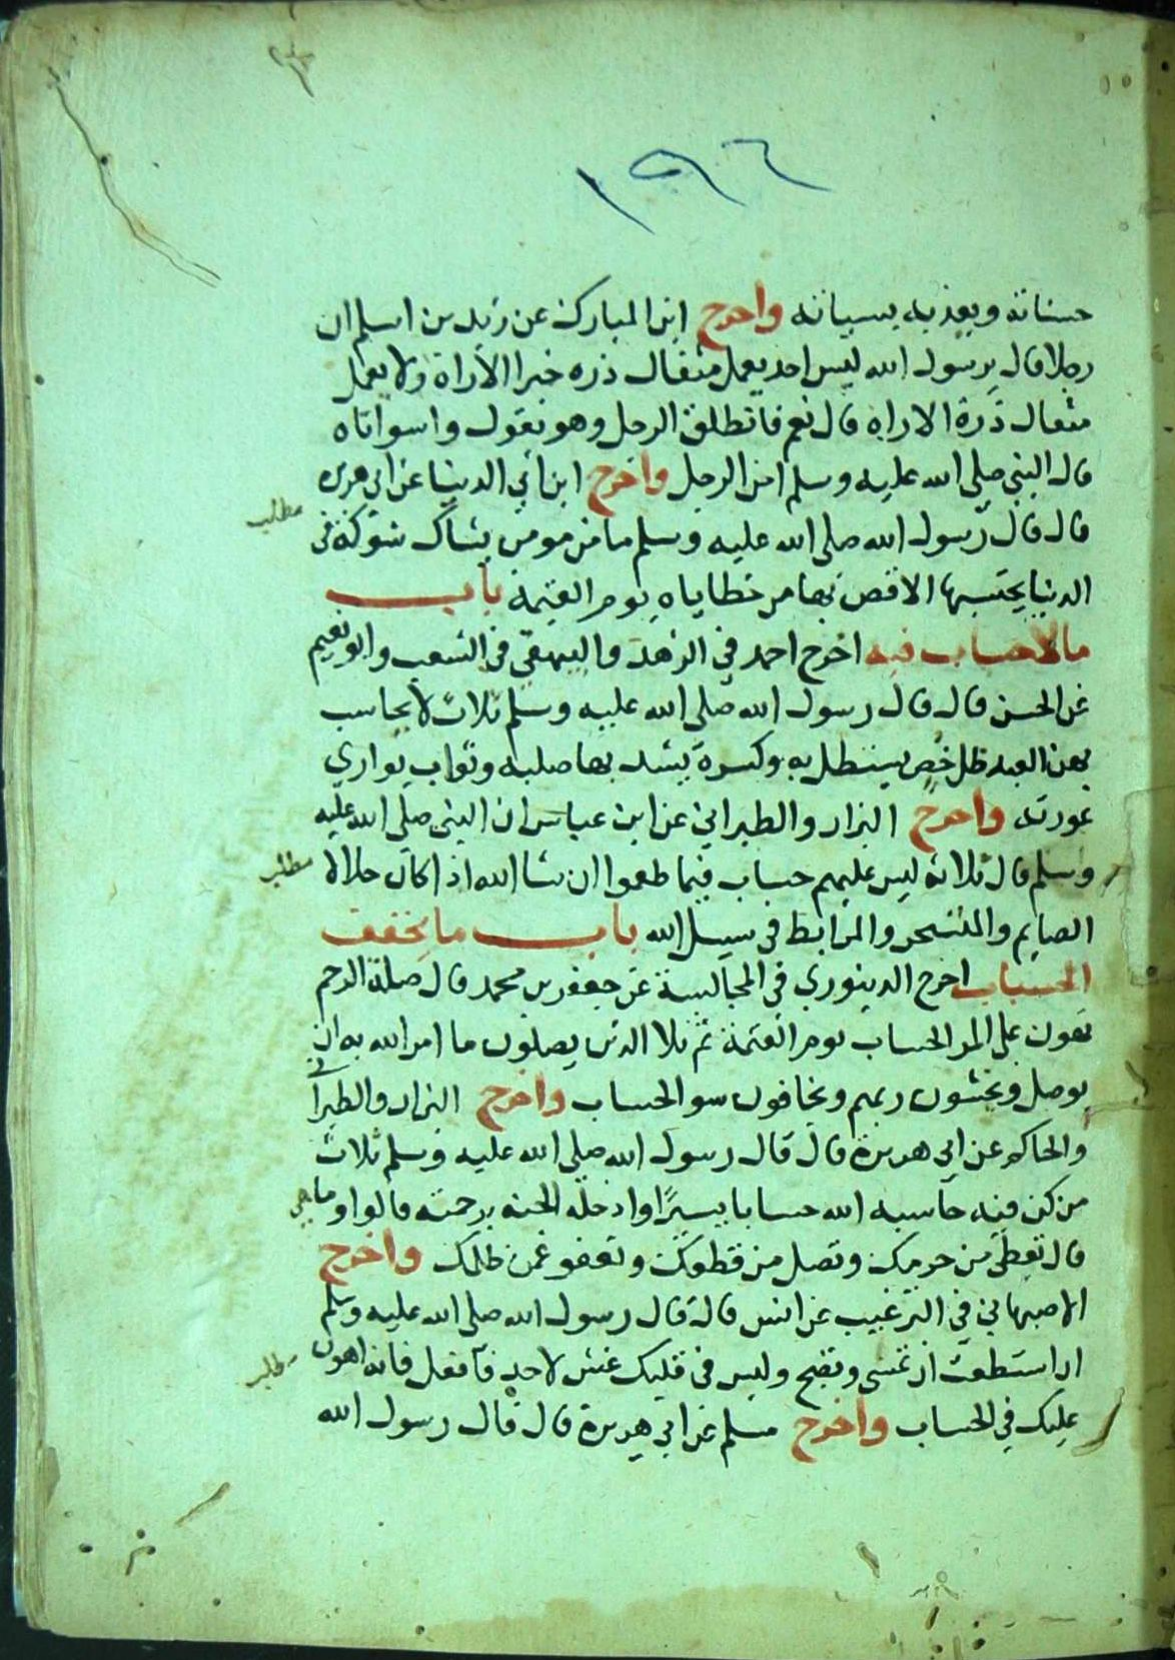 ١٩٦
حسناته ويعذبه بسياته واخرج ابن المبارك عن زيد بن اسلم ان
رجلا قال يرسول الله ليس احد يعمل مثقال ذره خيرا الا راه ولا يعمل
مثقال ذرة الا راه قال نعم فانطلق الرجل وهو يقول واسواتاه
قال النبي صلى الله عليه وسلم امن الرجل واخرج ابن ابي الدنيا عن ابي هريره
مطلب
قال قال رسول الله صلى الله عليه وسلم ما من مومن يشاك شوكة في
الدنيا يحتسبها الا قص بها من خطاياه يوم القيمة باب
ما لا حساب فيه اخرج احمد في الزهد والبيهقي في الشعب وابو نعيم
عن الحسن قال قال رسول الله صلى الله عليه وسلم ثلاث لا يحاسب
بهن العبد ظل خص يستظل به وكسرة يشد بها صلبه وثواب يواري
عورته واخرج البزار والطبراني عن ابن عباس ان النبي صلى الله عليه
وسلم قال ثلاثة ليس عليهم حساب فيما طعموا ان شا الله اذا كان حلالا
مطلب
الصايم والمتسحر والمرابط في سبيل الله باب ما يخفف
الحساب اخرج الدينوري في المجالسة عن جعفر بن محمد قال صلة الرحم
تهون على المر الحساب يوم القيمة ثم تلا الذين يصلون ما امر الله به ان
يوصل ويخشون ربهم ويخافون سو الحساب واخرج البزار والطبراني
والحاكم عن ابي هريرة قال قال رسول الله صلى الله عليه وسلم ثلاث
من كن فيه حاسبه الله حسابا يسيرًا وادخله الجنة برحمته قالوا وما هي
قال تعطي من حرمك وتصل من قطعك وتعفو عمن ظلمك واخرج
الاصبهاني في الترغيب عن انس قال قال رسول الله صلى الله عليه وسلم
ان استطعت ان تمسى وتصبح وليس في قلبك غش لاحد فافعل فانه اهون
مطلب
عليك في الحساب واخرج مسلم عن ابي هريرة قال قال رسول الله